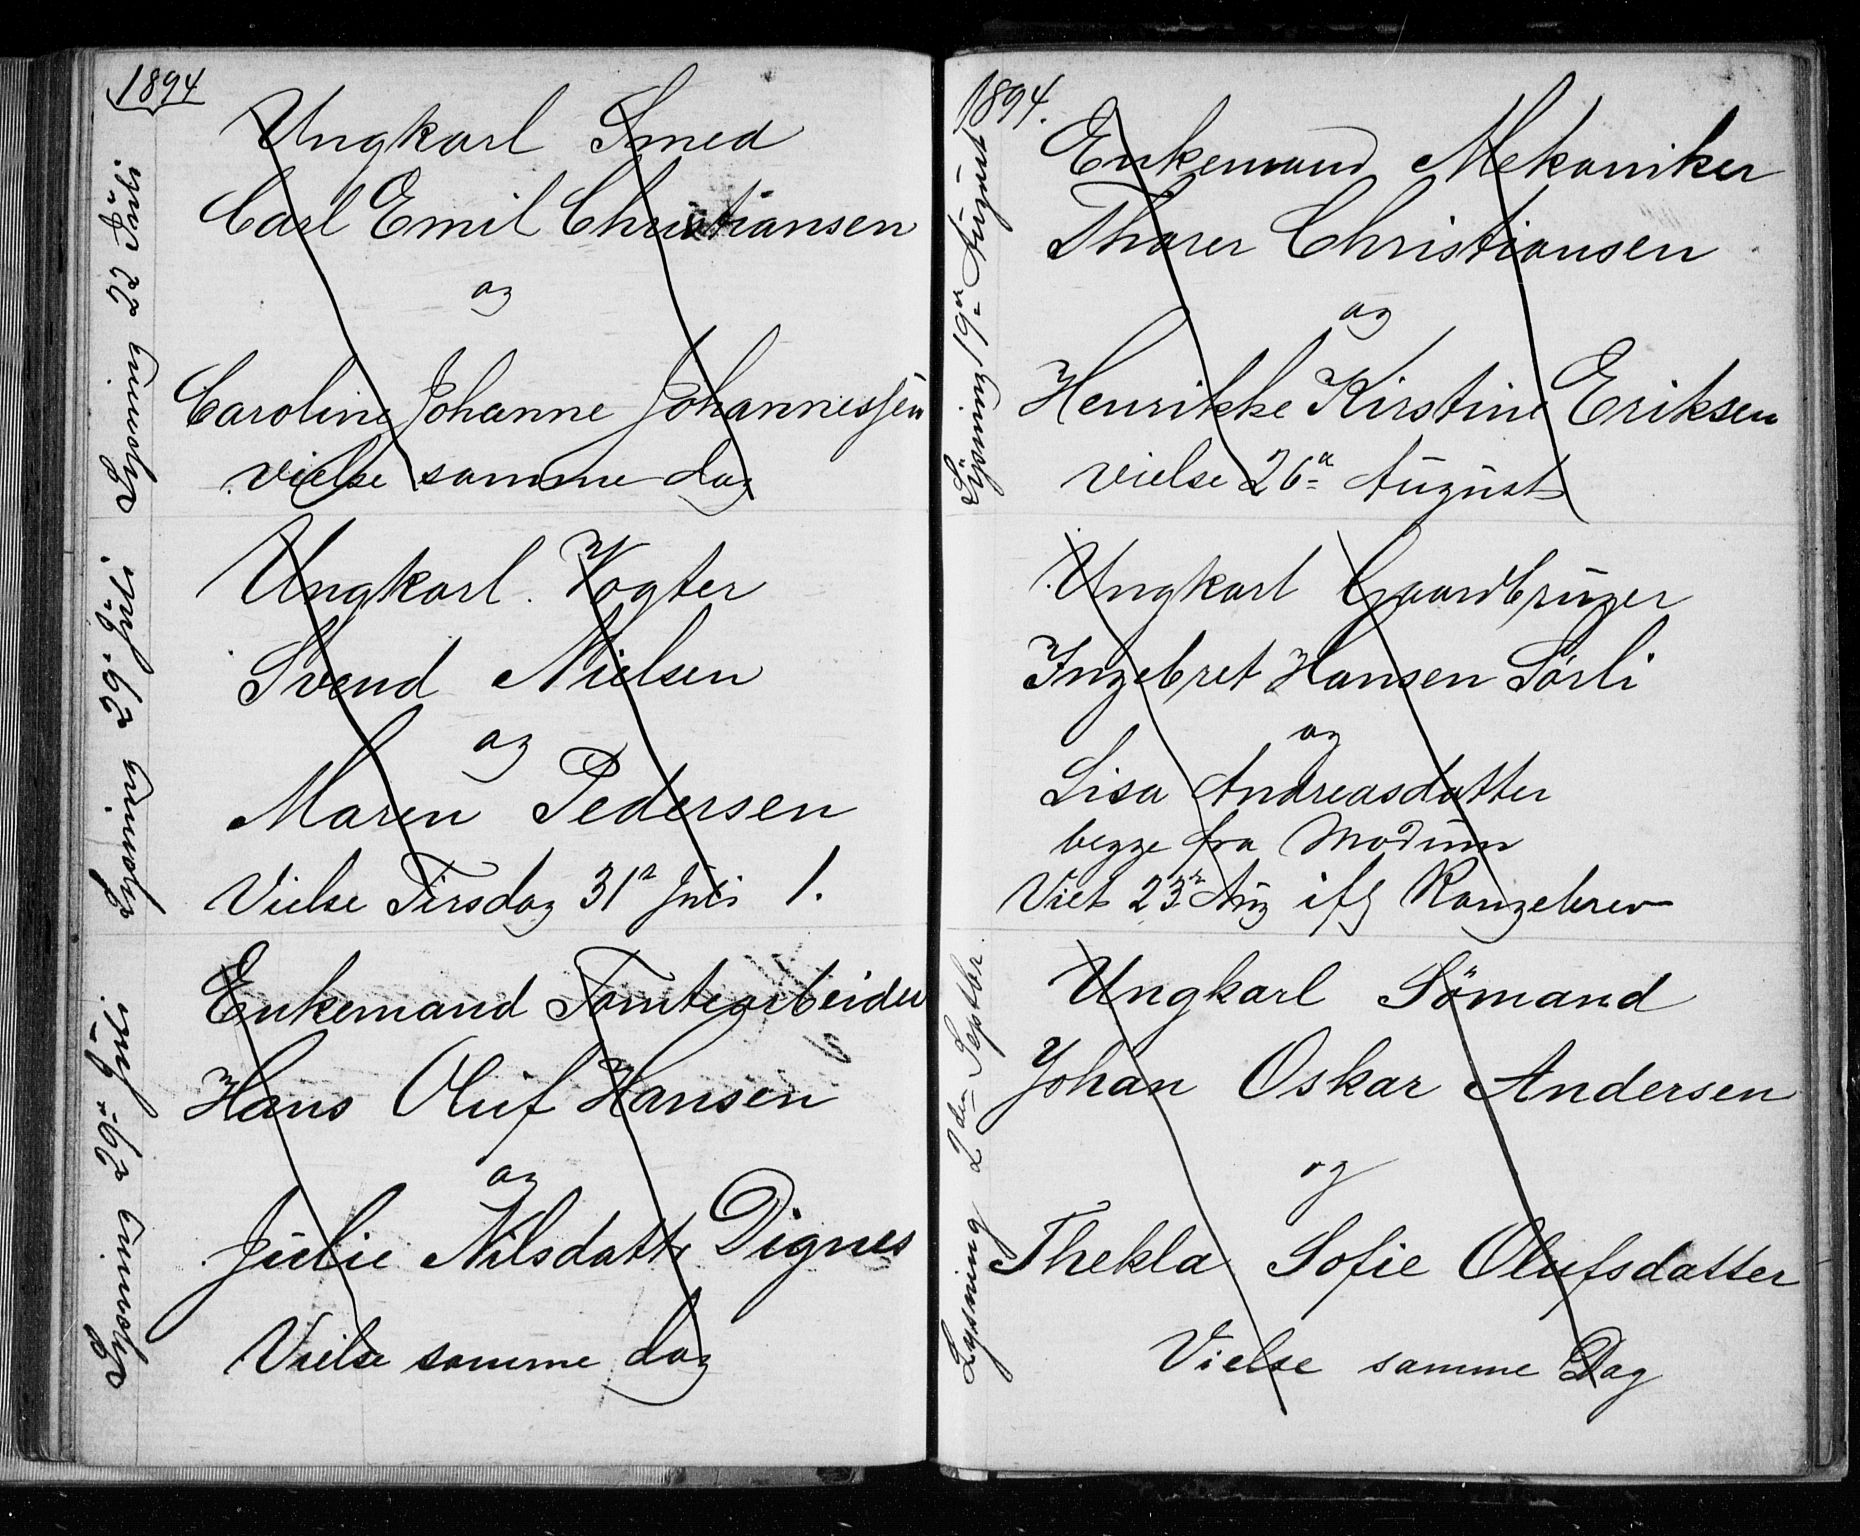 1894
Lysning 22 d Juli.
Ungkarl Smed
Carl Emil Christiansen
og
Caroline Johanne Johannessen
vielse samme dag
Lysning 29 d Juli
Ungkarl Vogter
Svend Nielsen
og
Maren Pedersen
Vielse Tirsdag 31 d Juli 1.
Lysning 29 d Juli
Enkemand Tomtearbeider
Hans Oluf Hansen
og
Julie Nilsdatter Dignes
Vielse samme dag
1894.
Lysning 19 d August
Enkemand Mekaniker
Thorer Christiansen
og
Henrikke Kirstine Eriksen
vielse 26 d August
Ungkarl Gaardbruger
Ingebret Hansen Sörli
og
Lisa Andreasdatter
begge fra Modum
Viet 23 d Aug ifg Kongebrev
Lysning 2den Septbr.
Ungkarl Sömand
Johan Oskar Andersen
og
Thekla Sofie Olufsdatter
Vielse samme Dag